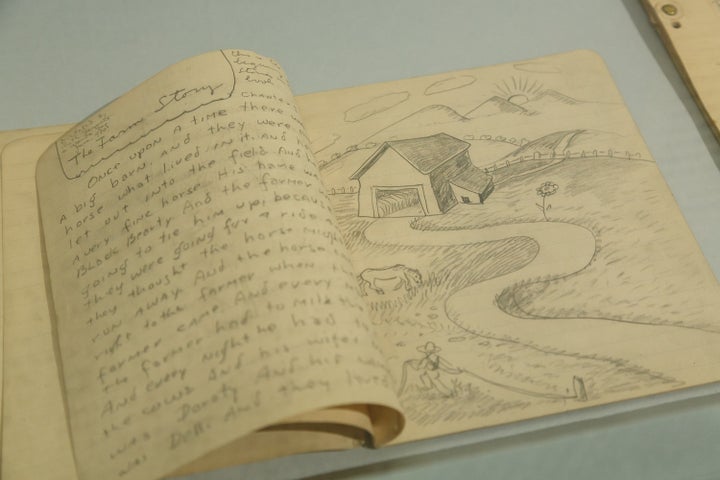 The Farm Story
Chapter
Once upon A time there
A big barn. and they were
horse what lived in it. And
let out into the field And
A very fine horse. His name w
Black Beauty And the farmer
going to tie him up, because
they were going for A ride
they thought the horse might
run away And the horse
right to the farmer when
farmer came And every
the farmer had to milk the
And every night he had to
the cows And his wife
was Doroty And his
was Dell And they lived